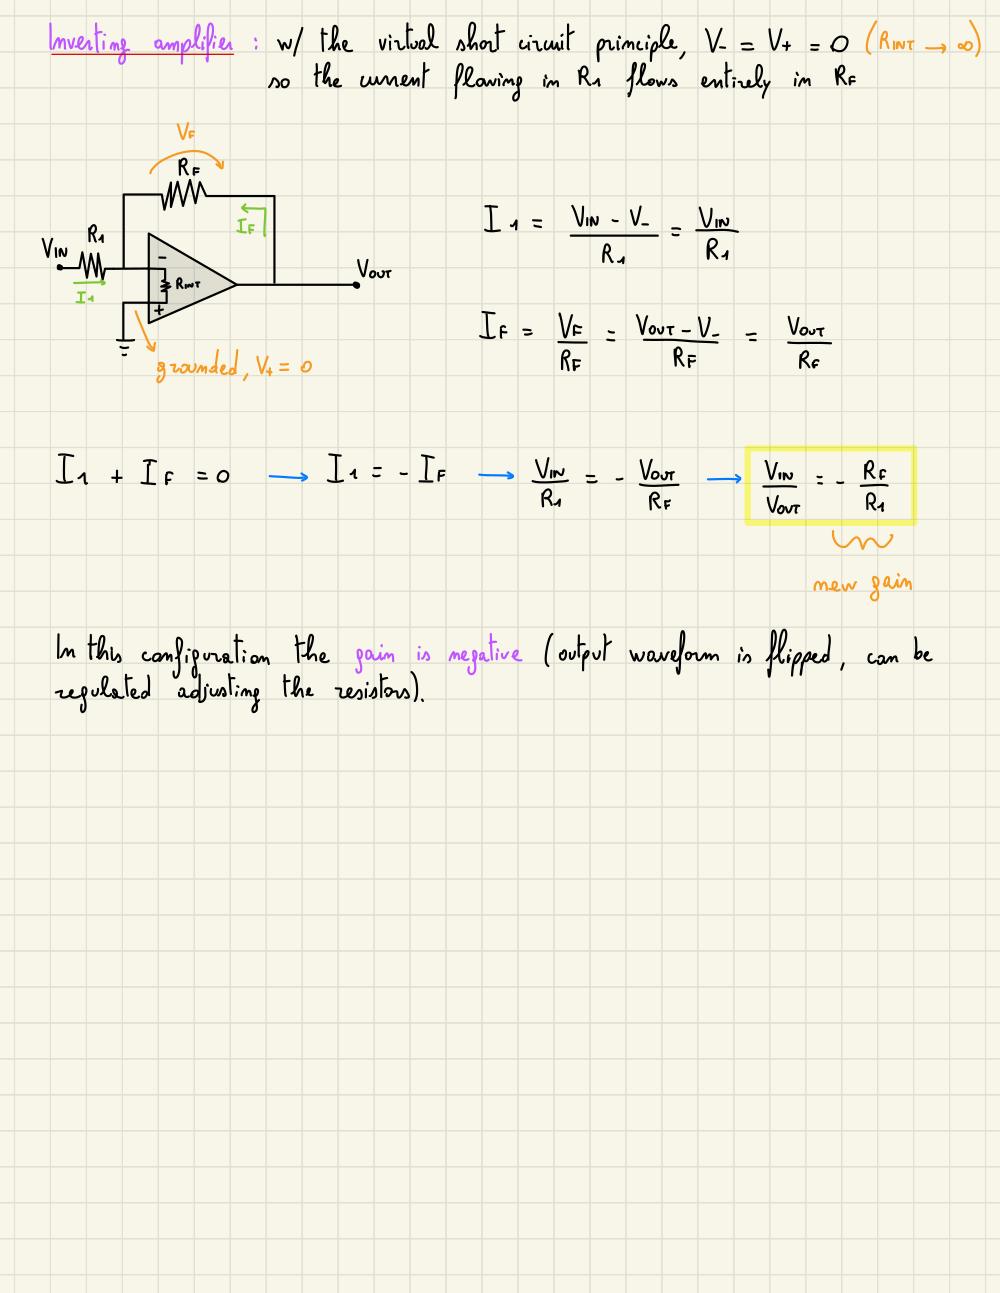 Inverting amplifier : w/ the virtual short circuit principle, V- = V+ = 0 (RINT → ∞)
so the current flowing in R1 flows entirely in RF
VF
RF
IF
R1
VIN
I1
-
RINT
+
VOUT
grounded, V+ = 0
I1 = (VIN - V-)/R1 = VIN/R1
IF = VF/RF = (VOUT - V-)/RF = VOUT/RF
I1 + IF = 0 → I1 = - IF → VIN/R1 = - VOUT/RF → VIN/VOUT = - RF/R1
new gain
In this configuration the gain is negative (output waveform is flipped, can be
regulated adjusting the resistors).